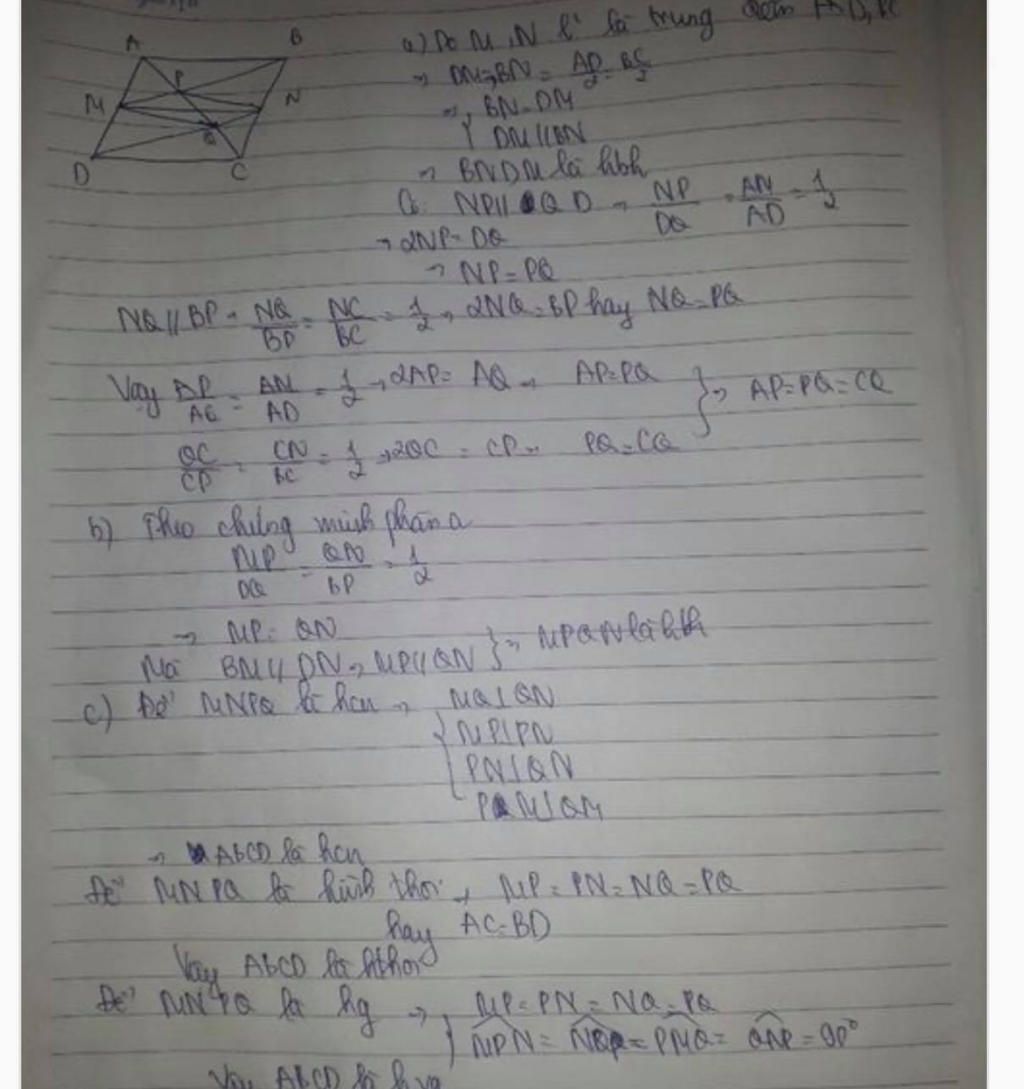 A B
M P N
Q
D C
a) Do M, N lt là trung điểm AD, BC
→ DM = BN = AD/2 = BC/2
→ { BN = DM
DM // BN
→ BNDM là hbh
NP // QD → NP/DQ = AN/AD = 1/2
→ 2NP = DQ
→ NP = PQ
NQ // BP → NQ/BP = NC/BC = 1/2 → 2NQ = BP hay NQ = PQ
Vay AP/AQ = AN/AD = 1/2 → 2AP = AQ → AP = PQ
} → AP = PQ = CQ
QC/CP = CN/BC = 1/2 → 2QC = CP → PQ = CQ
b) Theo chứng minh phần a
MP/DQ = QN/BP = 1/2
→ MP = QN
Mà BM // DN → MP // QN } → MPQN là hbh
c) Để MNPQ là hcn → MQ ⊥ QN
{ MP ⊥ PN
PN ⊥ QN
PM ⊥ QM
→ ABCD là hcn
Để MNPQ là hình thoi → MP = PN = NQ = PQ
hay AC = BD
Vay ABCD là hthoi
Để MNPQ là hg → { MP = PN = NQ = PQ
MPN = NQP = PMQ = QNP = 90°
Vay ABCD là hvg